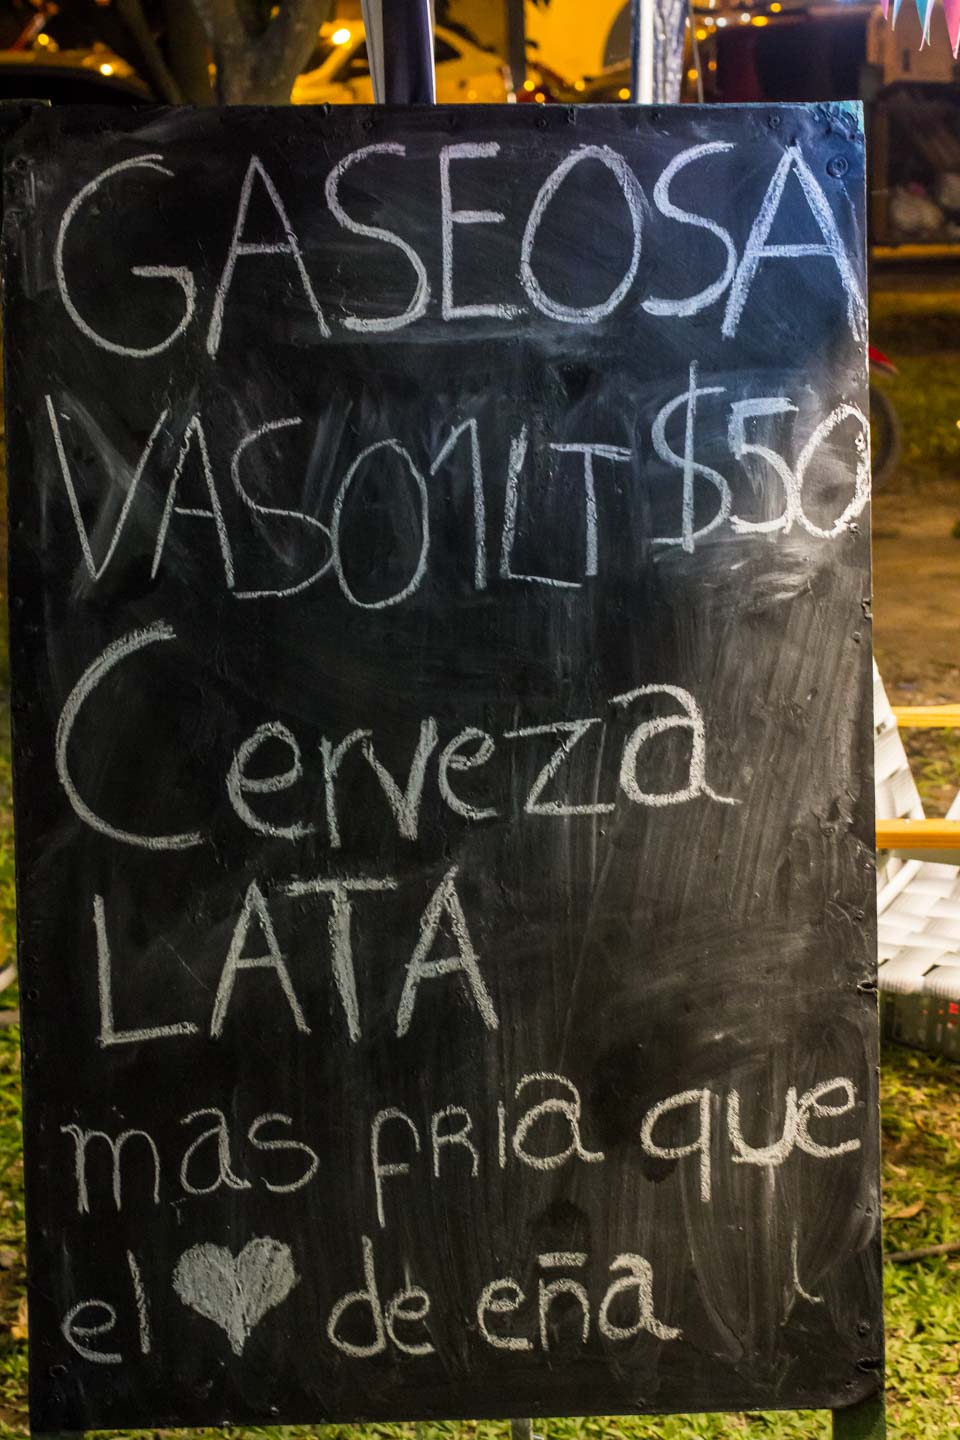 GASEOSA
VASO 1LT $50
Cerveza
LATA
mas fria que
el ♥ de eña